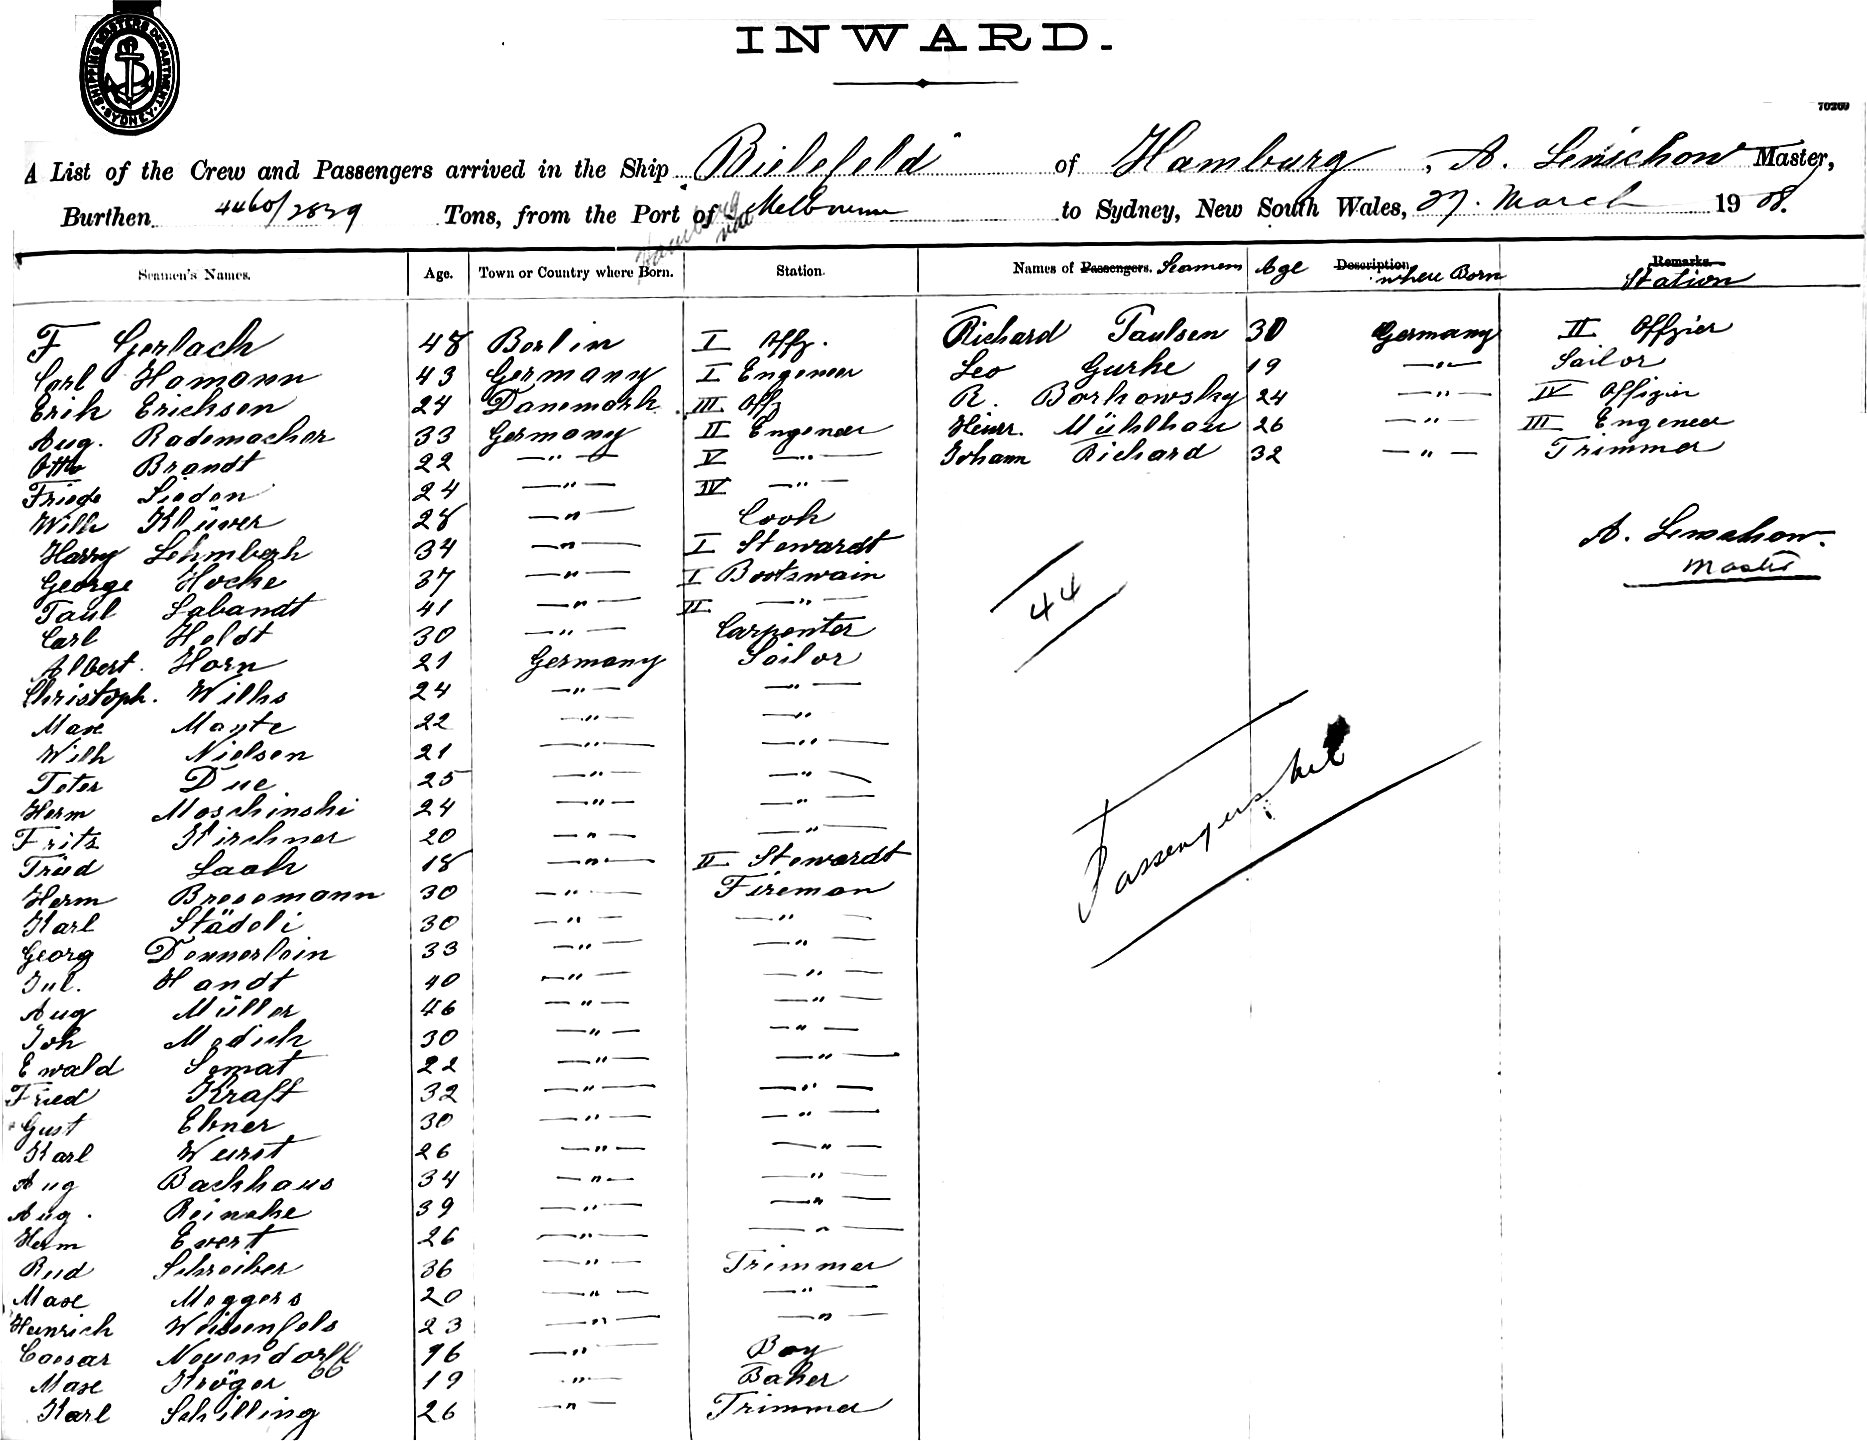 SHIPPING MASTERS DEPARTMENT. SYDNEY.
INWARD.
70269
A List of the Crew and Passengers arrived in the Ship Bielefeld of Hamburg, A. Lenschow Master,
Burthen 4460/2829 Tons, from the Port of Hamburg via Melbourne to Sydney, New South Wales, 27. March 1908.
Seamen's Names. Age. Town or Country where Born. Station. Names of Passengers. Seamens Age Description where Born Remarks. Station
F Gerlach 48 Berlin I Offz. Richard Paulsen 30 Germany II Offzier
Carl Hamann 43 Germany I Engeneer Leo Gurke 19 —"— Sailor
Erik Erichsen 24 Danemark III Offz R. Borkowsky 24 —"— IV Offizier
Aug. Rademacher 33 Germany II Engeneer Heinr. Mühlhau 26 —"— III Engeneer
Otto Brandt 22 —"— V —"— Johann Richard 32 —"— Trimmer
Friede Sieden 24 —"— IV —"—
Wilh Klüver 28 —"— Cook
Harry Lehmbegh 34 —"— I Stewardt
George Hocke 37 —"— I Bootswain
Paul Labandt 41 —"— II —"—
Carl Heldt 30 —"— Carpenter
Albert. Horn 21 Germany Sailor
Christoph. Wilks 24 —"— —"—
Max Mante 22 —"— —"
Wilh Nielsen 21 —"— —"—
Peter Due 25 —"— —"—
Herm Moschinski 24 —"— —"—
Fritz Kirchner 20 —"— —"—
Fried Laak 18 —"— II Stewardt
Herm Bresemann 30 —"— Fireman
Karl Städeli 30 —"— —"—
Georg Donnerlein 33 —"— —"—
Jul. Handt 40 —"— —"—
Aug Müller 46 —"— —"—
Joh Madich 30 —"— —"—
Ewald Semat 22 —"— —"—
Fried Kraft 32 —"— —"—
Gust Ebner 30 —"— —"—
Karl Wurst 26 —"— —"—
Aug Backhaus 34 —"— —"—
Aug. Reineke 39 —"— —"—
Herm Evert 26 —"— —"—
Rud Schreiber 36 —"— Trimmer
Max Meggers 20 —"— —"—
Heinrich Weissenfels 23 —"— —"—
Caesar Neuendorff 16 —"— Boy
Max Kröger 19 —"— Baker
Karl Schilling 26 —"— Trimmer
A. Lenschow.
Master
44
Passengers nil